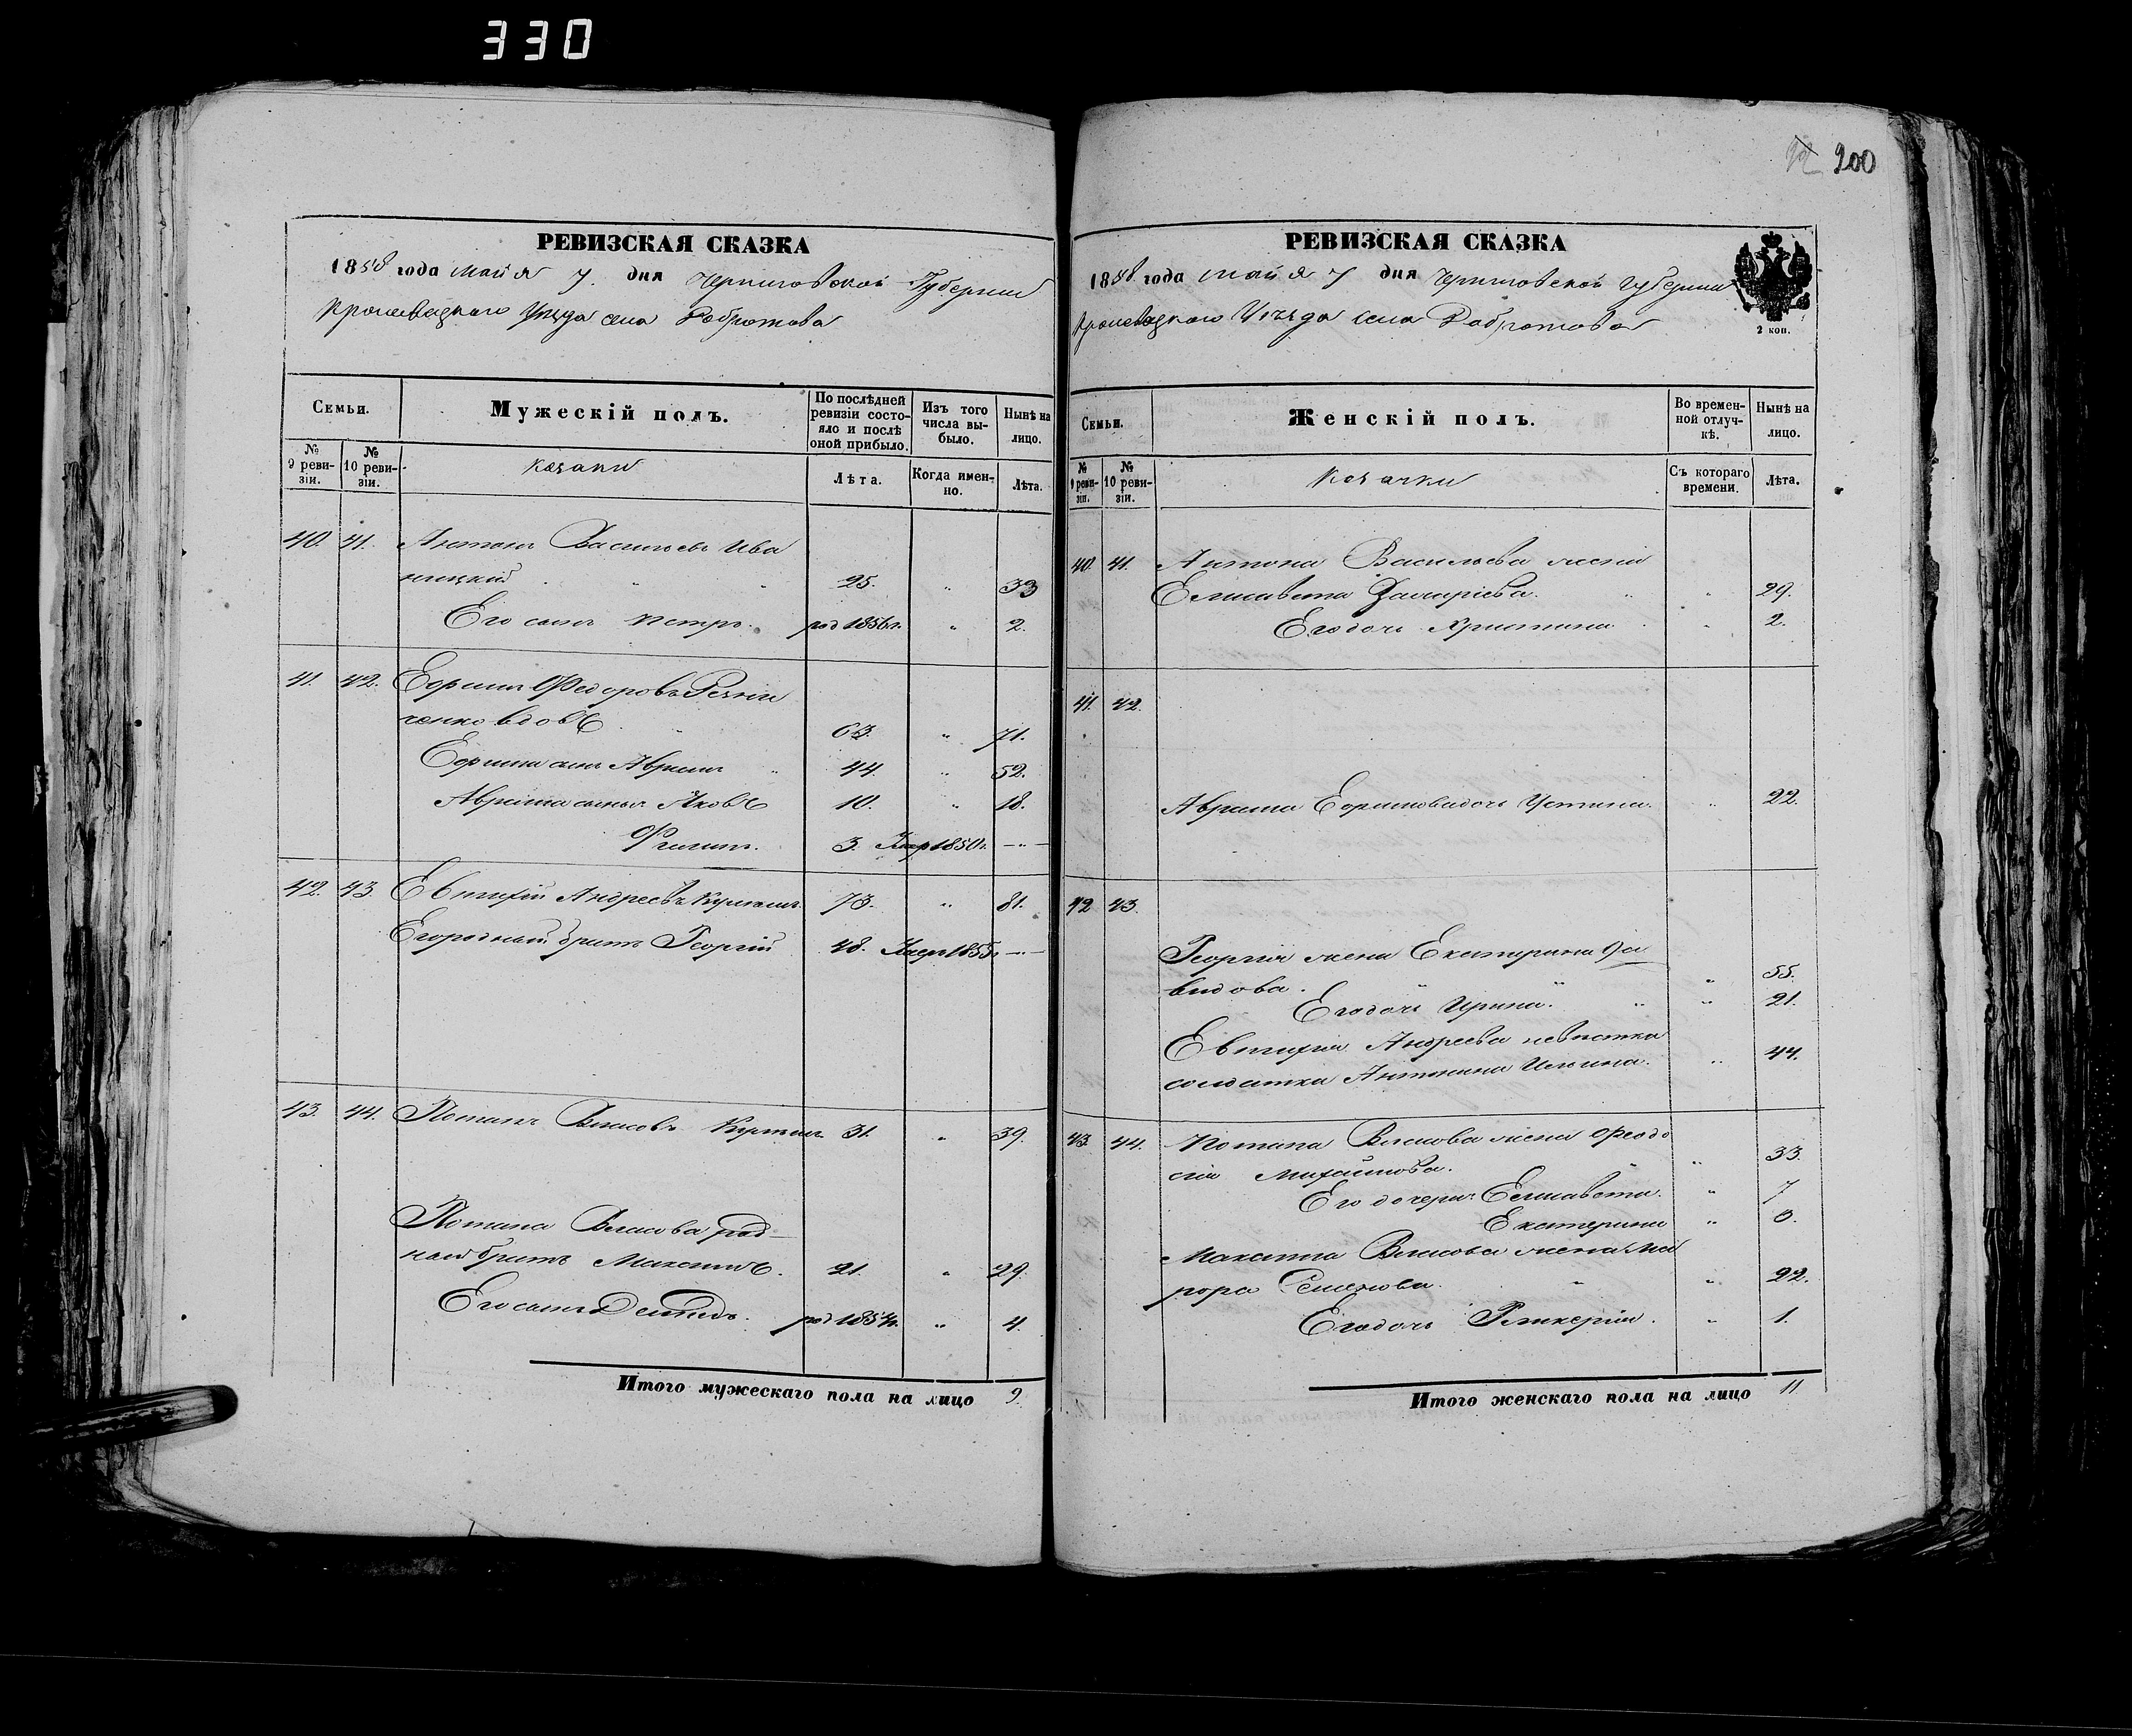 330
200
РЕВИЗСКАЯ СКАЗКА
1858 года мая 7 дня Черниговской Губернии
Кролевецкаго Уезда села Добротова
Семьи.
Мужескій полъ.
По послѣдней ревизіи состояло и послѣ оной прибыло.
Изъ того числа выбыло.
Нынѣ на лицо.
№ 9 ревизіи.
№ 10 ревизіи.
Козаки
Лѣта.
Когда именно.
Лѣта.
40. 41. Антонъ Васильевъ Ива
ницкій 25. " 33
Его сынъ Петръ. род 1856 г. " 2.
41. 42. Ефимъ Федоровъ
ченко вдовъ 63. " 71.
Ефима сынъ Абрамъ 44. " 52.
Абрама сынья Яковъ 10. " 18.
Филипъ. 3. Умер 1850 г. — " —
42. 43. Евтихій Андреевъ 73. " 81.
Его родный братъ Георгій 48. Умер 1855 г. — " —
43. 44. Потапъ Власовъ 31. " 39.
Потапа Власова род
ной братъ Максимъ. 21. " 29.
Его сынъ Демидъ. род 1854 г. " 4.
Итого мужескаго пола на лицо 9.
РЕВИЗСКАЯ СКАЗКА
1858 года мая 7 дня Черниговской Губернии
Кролевецкаго Уезда села Добротова
2 коп.
Семьи.
Женскій полъ.
Во временной отлучкѣ.
Нынѣ на лицо.
№ 9 ревизіи.
№ 10 ревизіи.
Козачки
Съ котораго времени.
Лѣта.
40. 41. Антона Васильева жена
Елисавета Захаріева. " 29.
Его дочь Христина " 2.
41. 42.
Абрама Ефимова дочь Устина. " 22.
42 43.
Георгія жена Екатерина Да
видова. " 55.
Его дочь Ирина. " 21.
Евтихія Андреева невѣстка
солдатка Антонина Ильина. " 44.
43. 44. Потапа Власова жена Феодо
сія Михайлова. " 33.
Его дочери: Елисавета. " 7
Екатерина " 6.
Максима Власова жена Ма
Семенова. " 22.
Его дочь Гликерія. " 1.
Итого женскаго пола на лицо 11